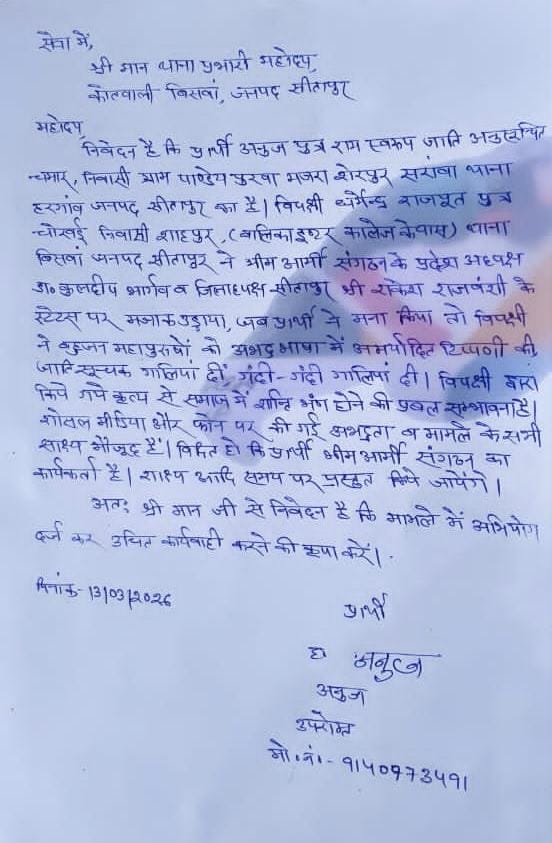 सेवा में,
श्री मान थाना प्रभारी महोदय,
कोतवाली बिसवां, जनपद सीतापुर
महोदय,
निवेदन है कि प्रार्थी अनुज पुत्र राम स्वरूप जाति अनुसूचित
चमार, निवासी ग्राम पाण्डेय पुरवा मजरा शेरपुर सरावां थाना
हरगांव जनपद सीतापुर का है। विपक्षी धर्मेन्द्र राजपूत पुत्र
चोखई निवासी शाहपुर, (बालिका इण्टर कालेज के पास) थाना
बिसवां जनपद सीतापुर ने भीम आर्मी संगठन के प्रदेश अध्यक्ष
डा० कुलदीप भार्गव व जिलाध्यक्ष सीतापुर श्री राकेश राजवंशी के
स्टेटस पर मजाक उड़ाया, जब प्रार्थी ने मना किया तो विपक्षी
ने बहुजन महापुरुषों को अभद्र भाषा में अमर्यादित टिप्पणी की,
जाति सूचक गालियां दीं गंदी-गंदी गालियां दी। विपक्षी द्वारा
किये गये कृत्य से समाज में शान्ति भंग होने की प्रबल सम्भावना है।
शोसल मीडिया और फोन पर की गई अभद्रता व मामले के सभी
साक्ष्य मौजूद हैं। विदित हो कि प्रार्थी भीम आर्मी संगठन का
कार्यकर्ता है। साक्ष्य आदि समय पर प्रस्तुत किये जायेंगे।
अतः श्री मान जी से निवेदन है कि मामले में अभियोग
दर्ज कर उचित कार्यवाही करने की कृपा करें।
दिनांक- 13/03/2026
प्रार्थी
ह० अनुज
अनुज
उपरोक्त
मो. नं.- 9140973491